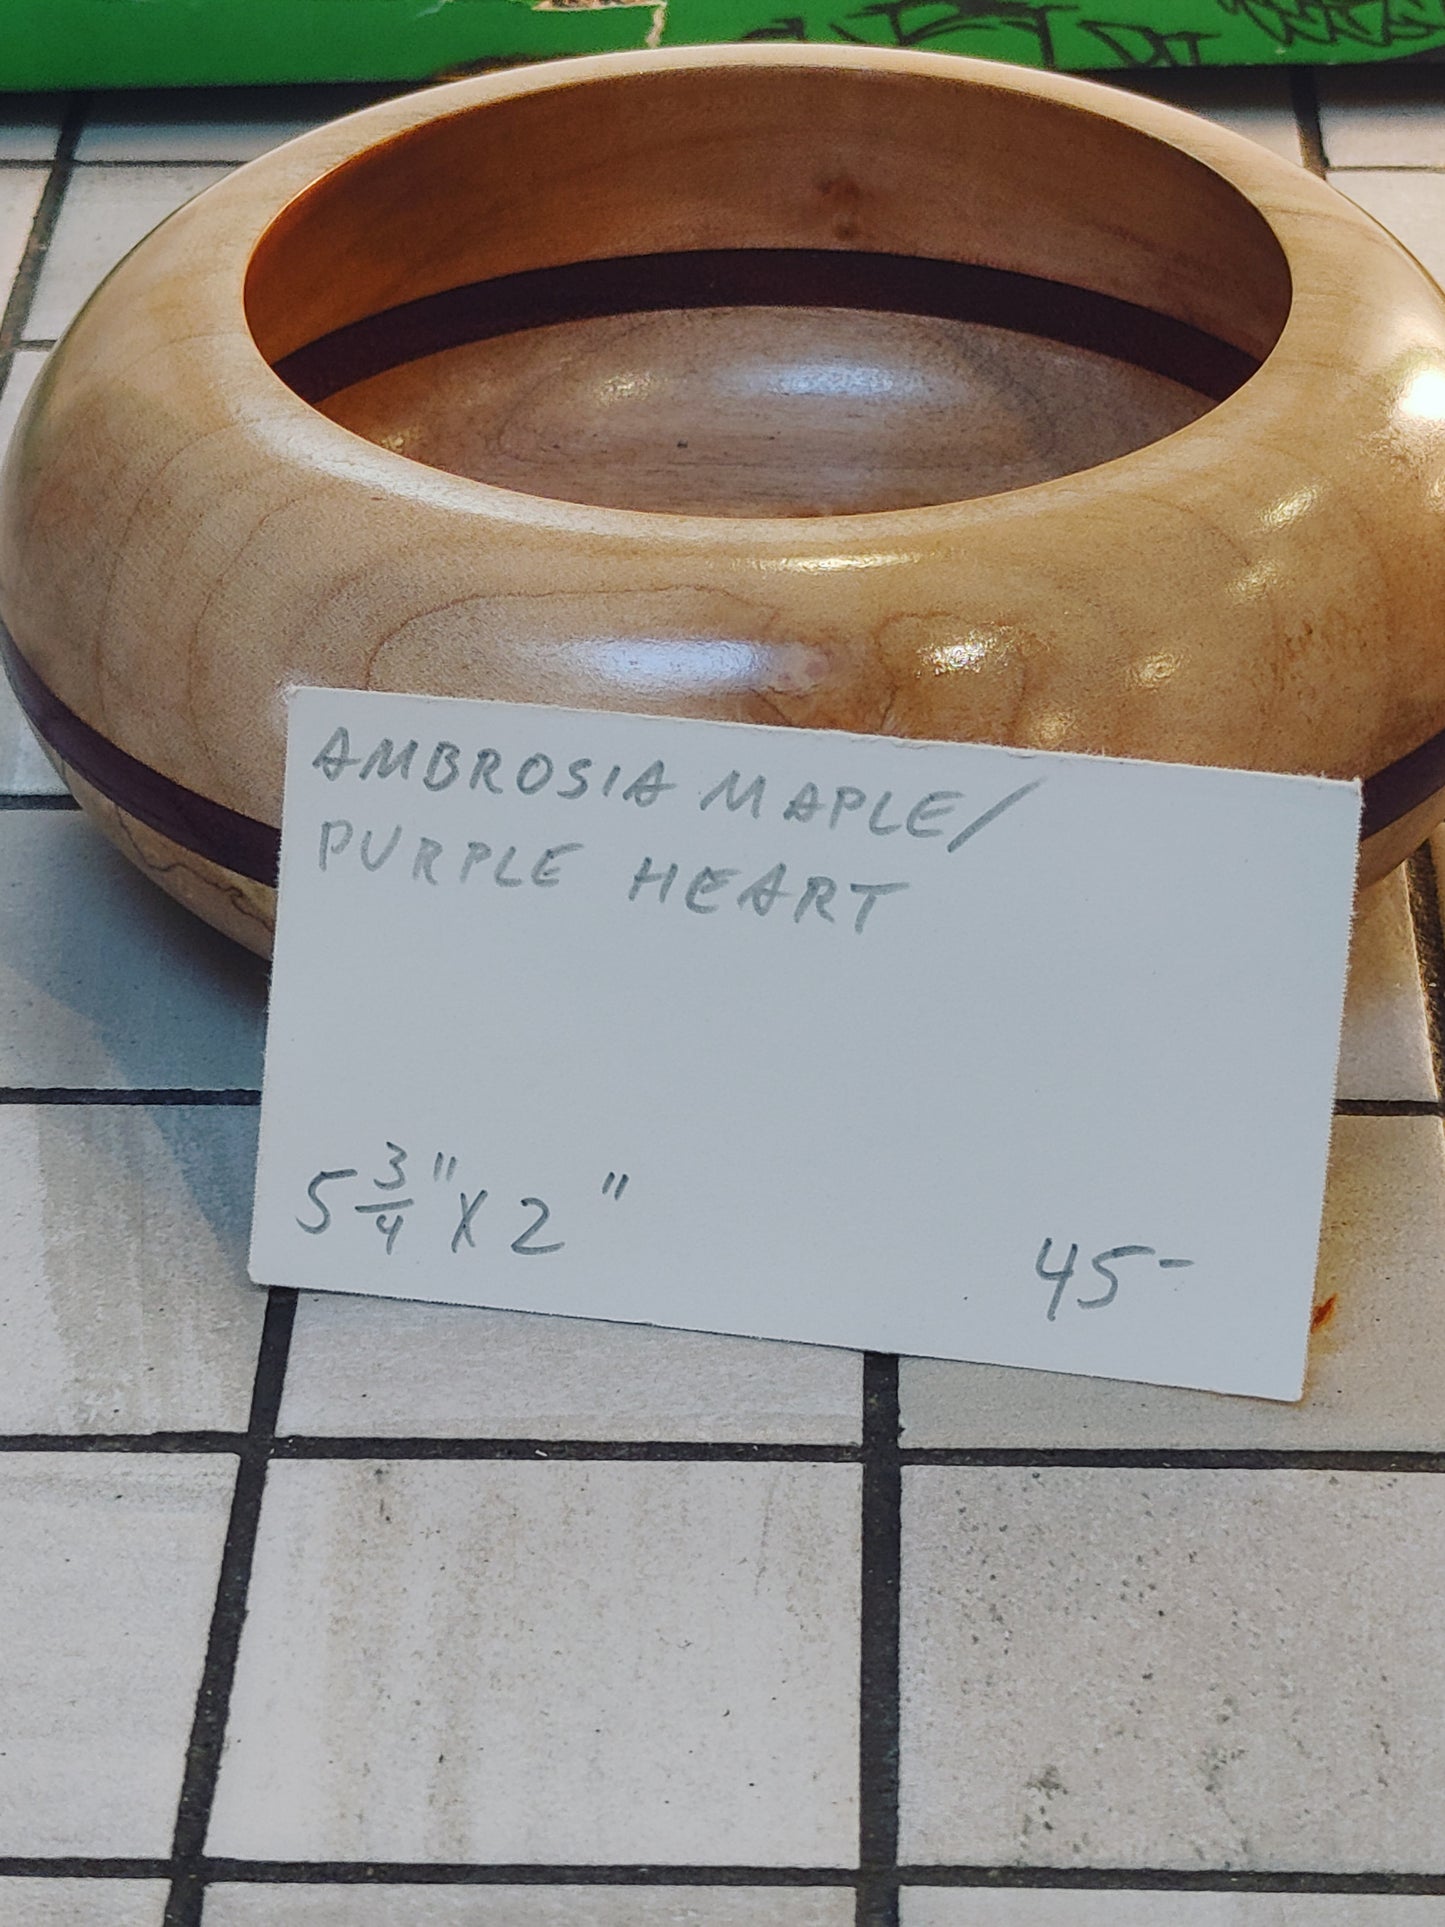 AMBROSIA MAPLE/
PURPLE HEART
5 3/4" X 2" 45-